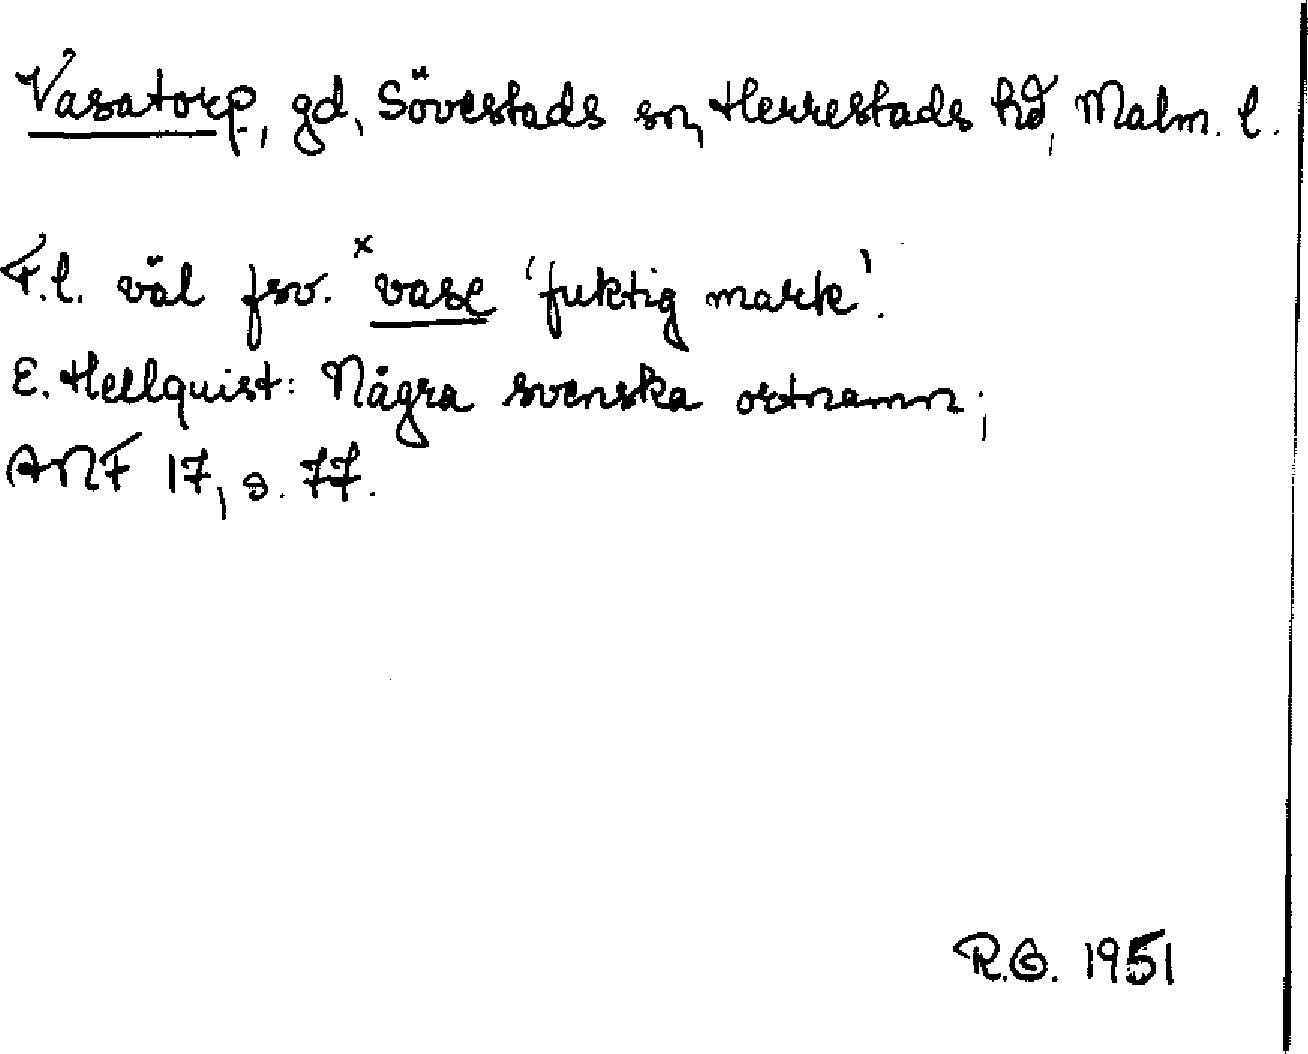 Vasatorp, gd, Sövestads sn, Herrestads hd, Malm. l.
F.l. väl fsv. ˣvase 'fuktig mark'.
E. Hellquist: Några svenska ortnamn;
ANF 17, s. 77.
R.G. 1951